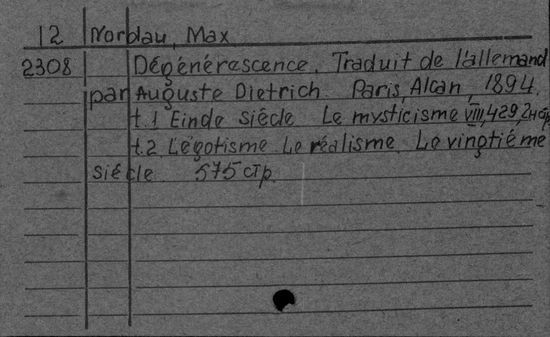 12 Nordau, Max
2308 Dégénérescence. Traduit de l'allemand
par Auguste Dietrich. Paris, Alcan, 1894.
t.1 Einde siécle Le mysticisme VIII, 429, 2н стр.
t.2 L'égotisme Le réalisme Le vingtiéme
siécle 575 стр.